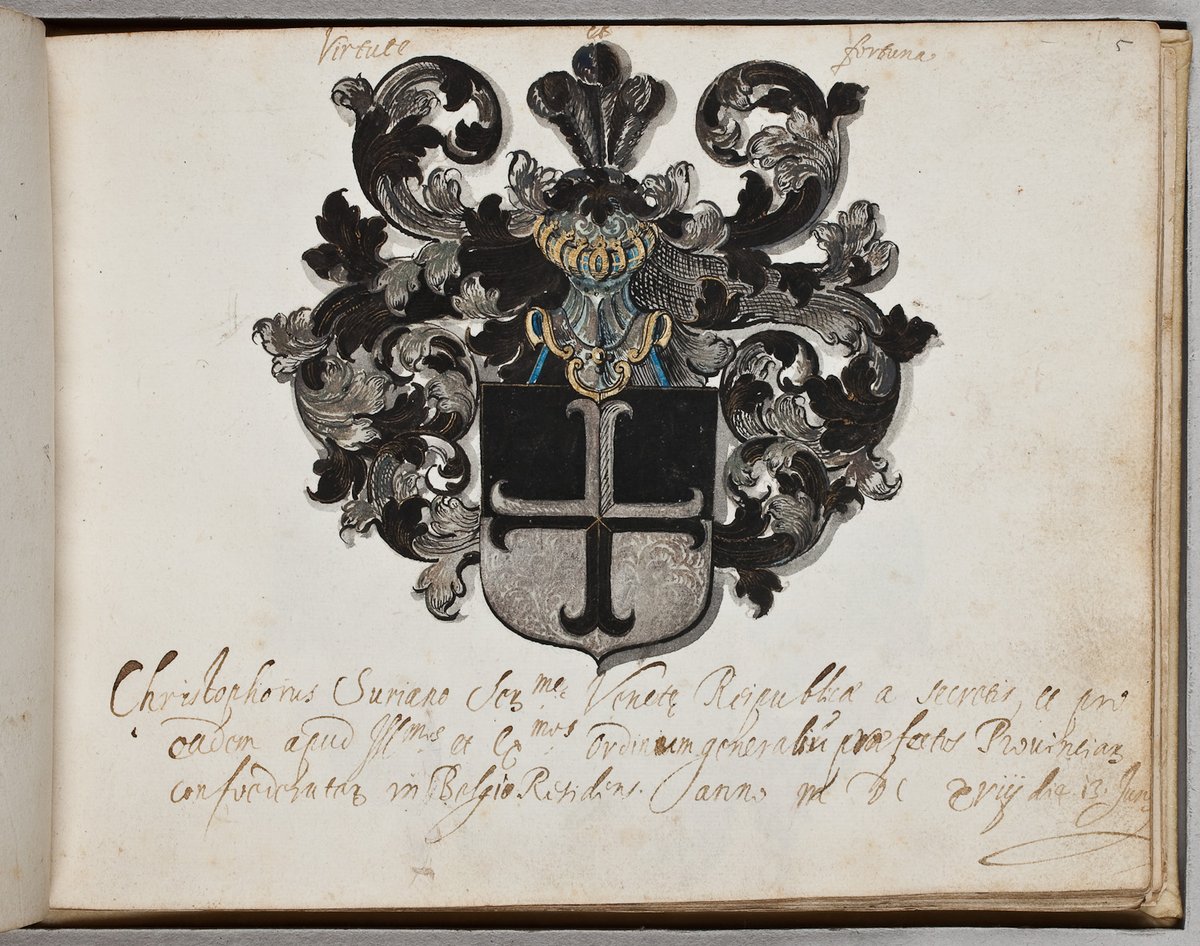 Virtute et fortuna
5
Christophorus Suriano Ser.me Venetę Reipublicæ a secretis, et pro
eadem apud Ill.mos et Ex.mos ordinum generaliū præfectos Provinciar
confœderatar in Belgio Residens. anno M DC xviij die 13. Junij